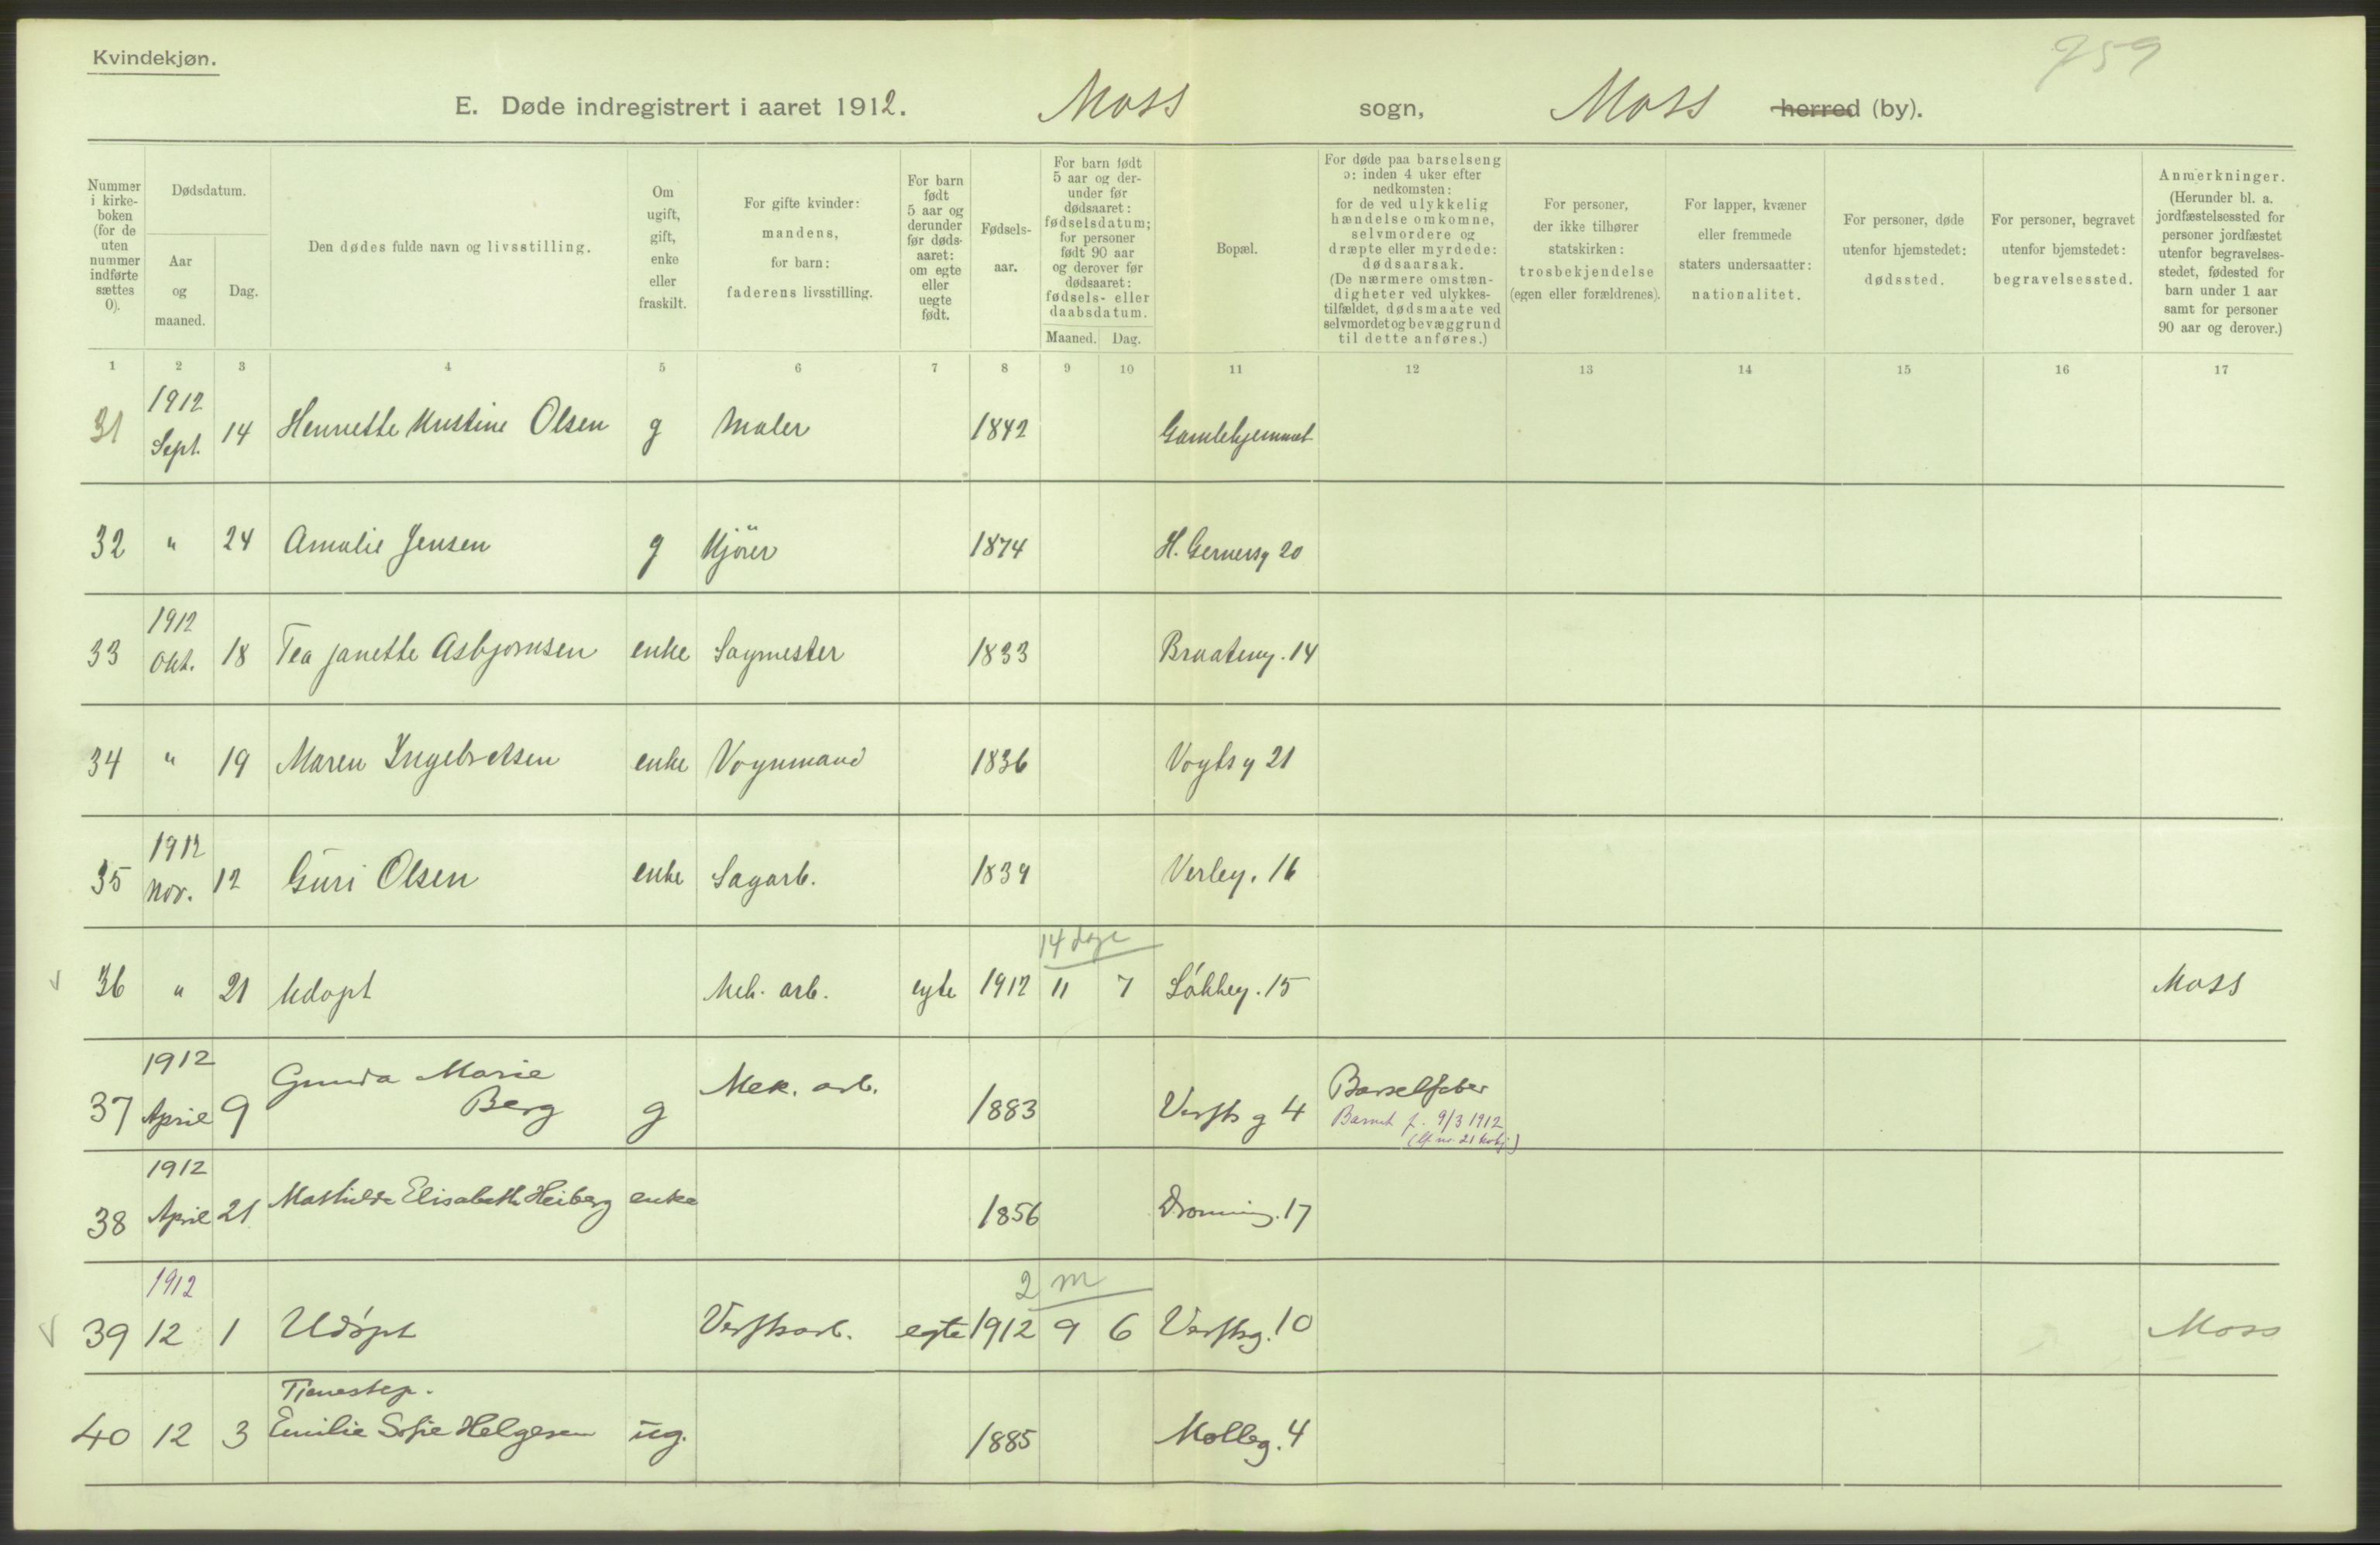 Kvindekjøn.
959
E. Døde indregistrert i aaret 1912. Moss sogn, Moss herred (by).
Nummer i kirke-boken (for de uten nummer indførte sættes 0).
Dødsdatum.
Aar og maaned.
Dag.
Den dødes fulde navn og livsstilling.
Om ugift, gift, enke eller fraskilt.
For gifte kvinder: mandens, for barn: faderens livsstilling.
For barn født 5 aar og derunder før døds-aaret: om egte eller uegte født.
Fødsels-aar.
For barn født 5 aar og der-under før dødsaaret: fødselsdatum; for personer født 90 aar og derover før dødsaaret: fødsels- eller daabsdatum.
Maaned. Dag.
Bopæl.
For døde paa barselseng ɔ: inden 4 uker efter nedkomsten: for de ved ulykkelig hændelse omkomne, selvmordere og dræpte eller myrdede: dødsaarsak. (De nærmere omstæn-digheter ved ulykkes-tilfældet, dødsmaate ved selvmordet og bevæggrund til dette anføres.)
For personer, der ikke tilhører statskirken: trosbekjendelse (egen eller forældrenes).
For lapper, kvæner eller fremmede staters undersaatter: nationalitet.
For personer, døde utenfor hjemstedet: dødssted.
For personer, begravet utenfor hjemstedet: begravelsessted.
Anmerkninger. (Herunder bl. a. jordfæstelsessted for personer jordfæstet utenfor begravelses-stedet, fødested for barn under 1 aar samt for personer 90 aar og derover.)
1 2 3 4 5 6 7 8 9 10 11 12 13 14 15 16 17
1912
31 Sept. 14 Henriette Kristine Olsen g Maler 1842 Gamlehjemmet
32 " 24 Amalie Jensen g Kjörer 1874 H. Gernersg 20
1912
33 Okt. 18 Tea Janette Asbjornsen enke Sagmester 1833 Braateng. 14
34 " 19 Maren Ingebretsen enke Vognmand 1836 Vogtsg 21
1912
35 Nov. 12 Guri Olsen enke Sagarb. 1834 Verleg. 16
14 dage
36 " 21 Udøpt Mek. arb. egte 1912 11 7 Løkkeg. 15 Moss
1912
37 April 9 Gunda Marie Berg g Mek. arb. 1883 Verfts g 4 Barselfeber
Barnet f. 9/3 1912
(lf nr. 21 kvkj)
1912
38 April 21 Mathilde Elisabeth Heiberg enke 1856 Dronning. 17
1912
2 m
39 12 1 Udøpt Verftsarb. egte 1912 9 6 Verftsg. 10 Moss
Tjenestep.
40 12 3 Emilie Sofie Helgesen ug. 1885 Molleg. 4